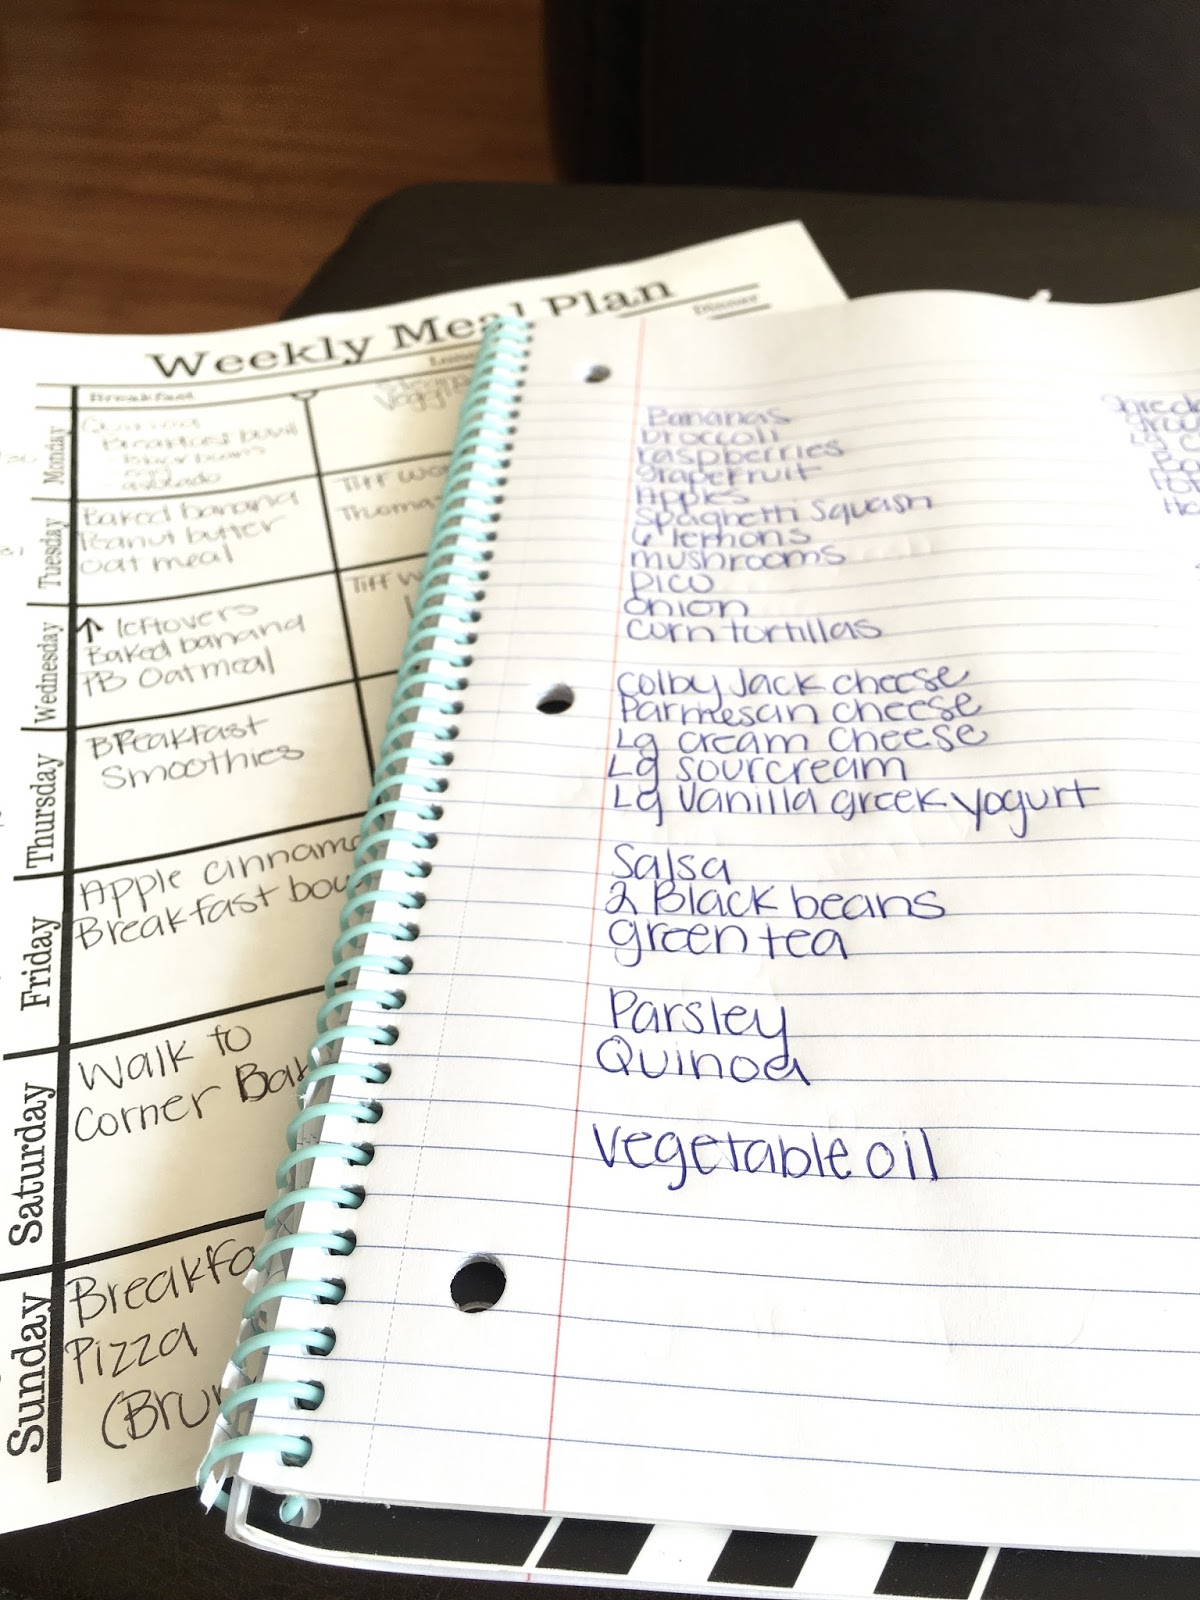 Weekly Meal Plan
Breakfast
Dinner
Monday
Quinoa
Breakfast bowl
black beans
egg
avocado
Tuesday
Baked banana
Peanut butter
oatmeal
Tiff
Wednesday
↑ leftovers
Baked banana
PB Oatmeal
Tiff
Thursday
Breakfast
Smoothies
Friday
Apple
Breakfast
Saturday
Walk to
Corner
Sunday
Pizza
Bananas
broccoli
raspberries
grapefruit
Apples
Spaghetti Squash
6 lemons
mushrooms
pico
onion
corn tortillas
Colby Jack cheese
Parmesan cheese
Lg cream cheese
Lg sourcream
Lg Vanilla greek yogurt
Salsa
2 Black beans
green tea
Parsley
Quinoa
vegetable oil